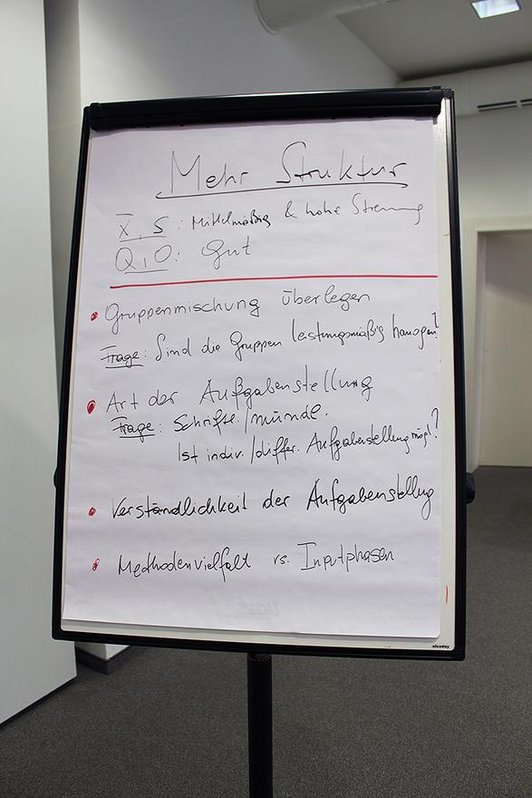 Mehr Struktur
X̅, S : Mittelmäßig & hohe Streuung
Q, O : Gut
• Gruppenmischung überlegen
Frage: Sind die Gruppen leistungsmäßig homogen?
• Art der Aufgabenstellung
Frage: Schriftl./mündl.
Ist indiv./differ. Aufgabenstellung mögl?
• Verständlichkeit der Aufgabenstellung
• Methodenvielfalt vs. Inputphasen